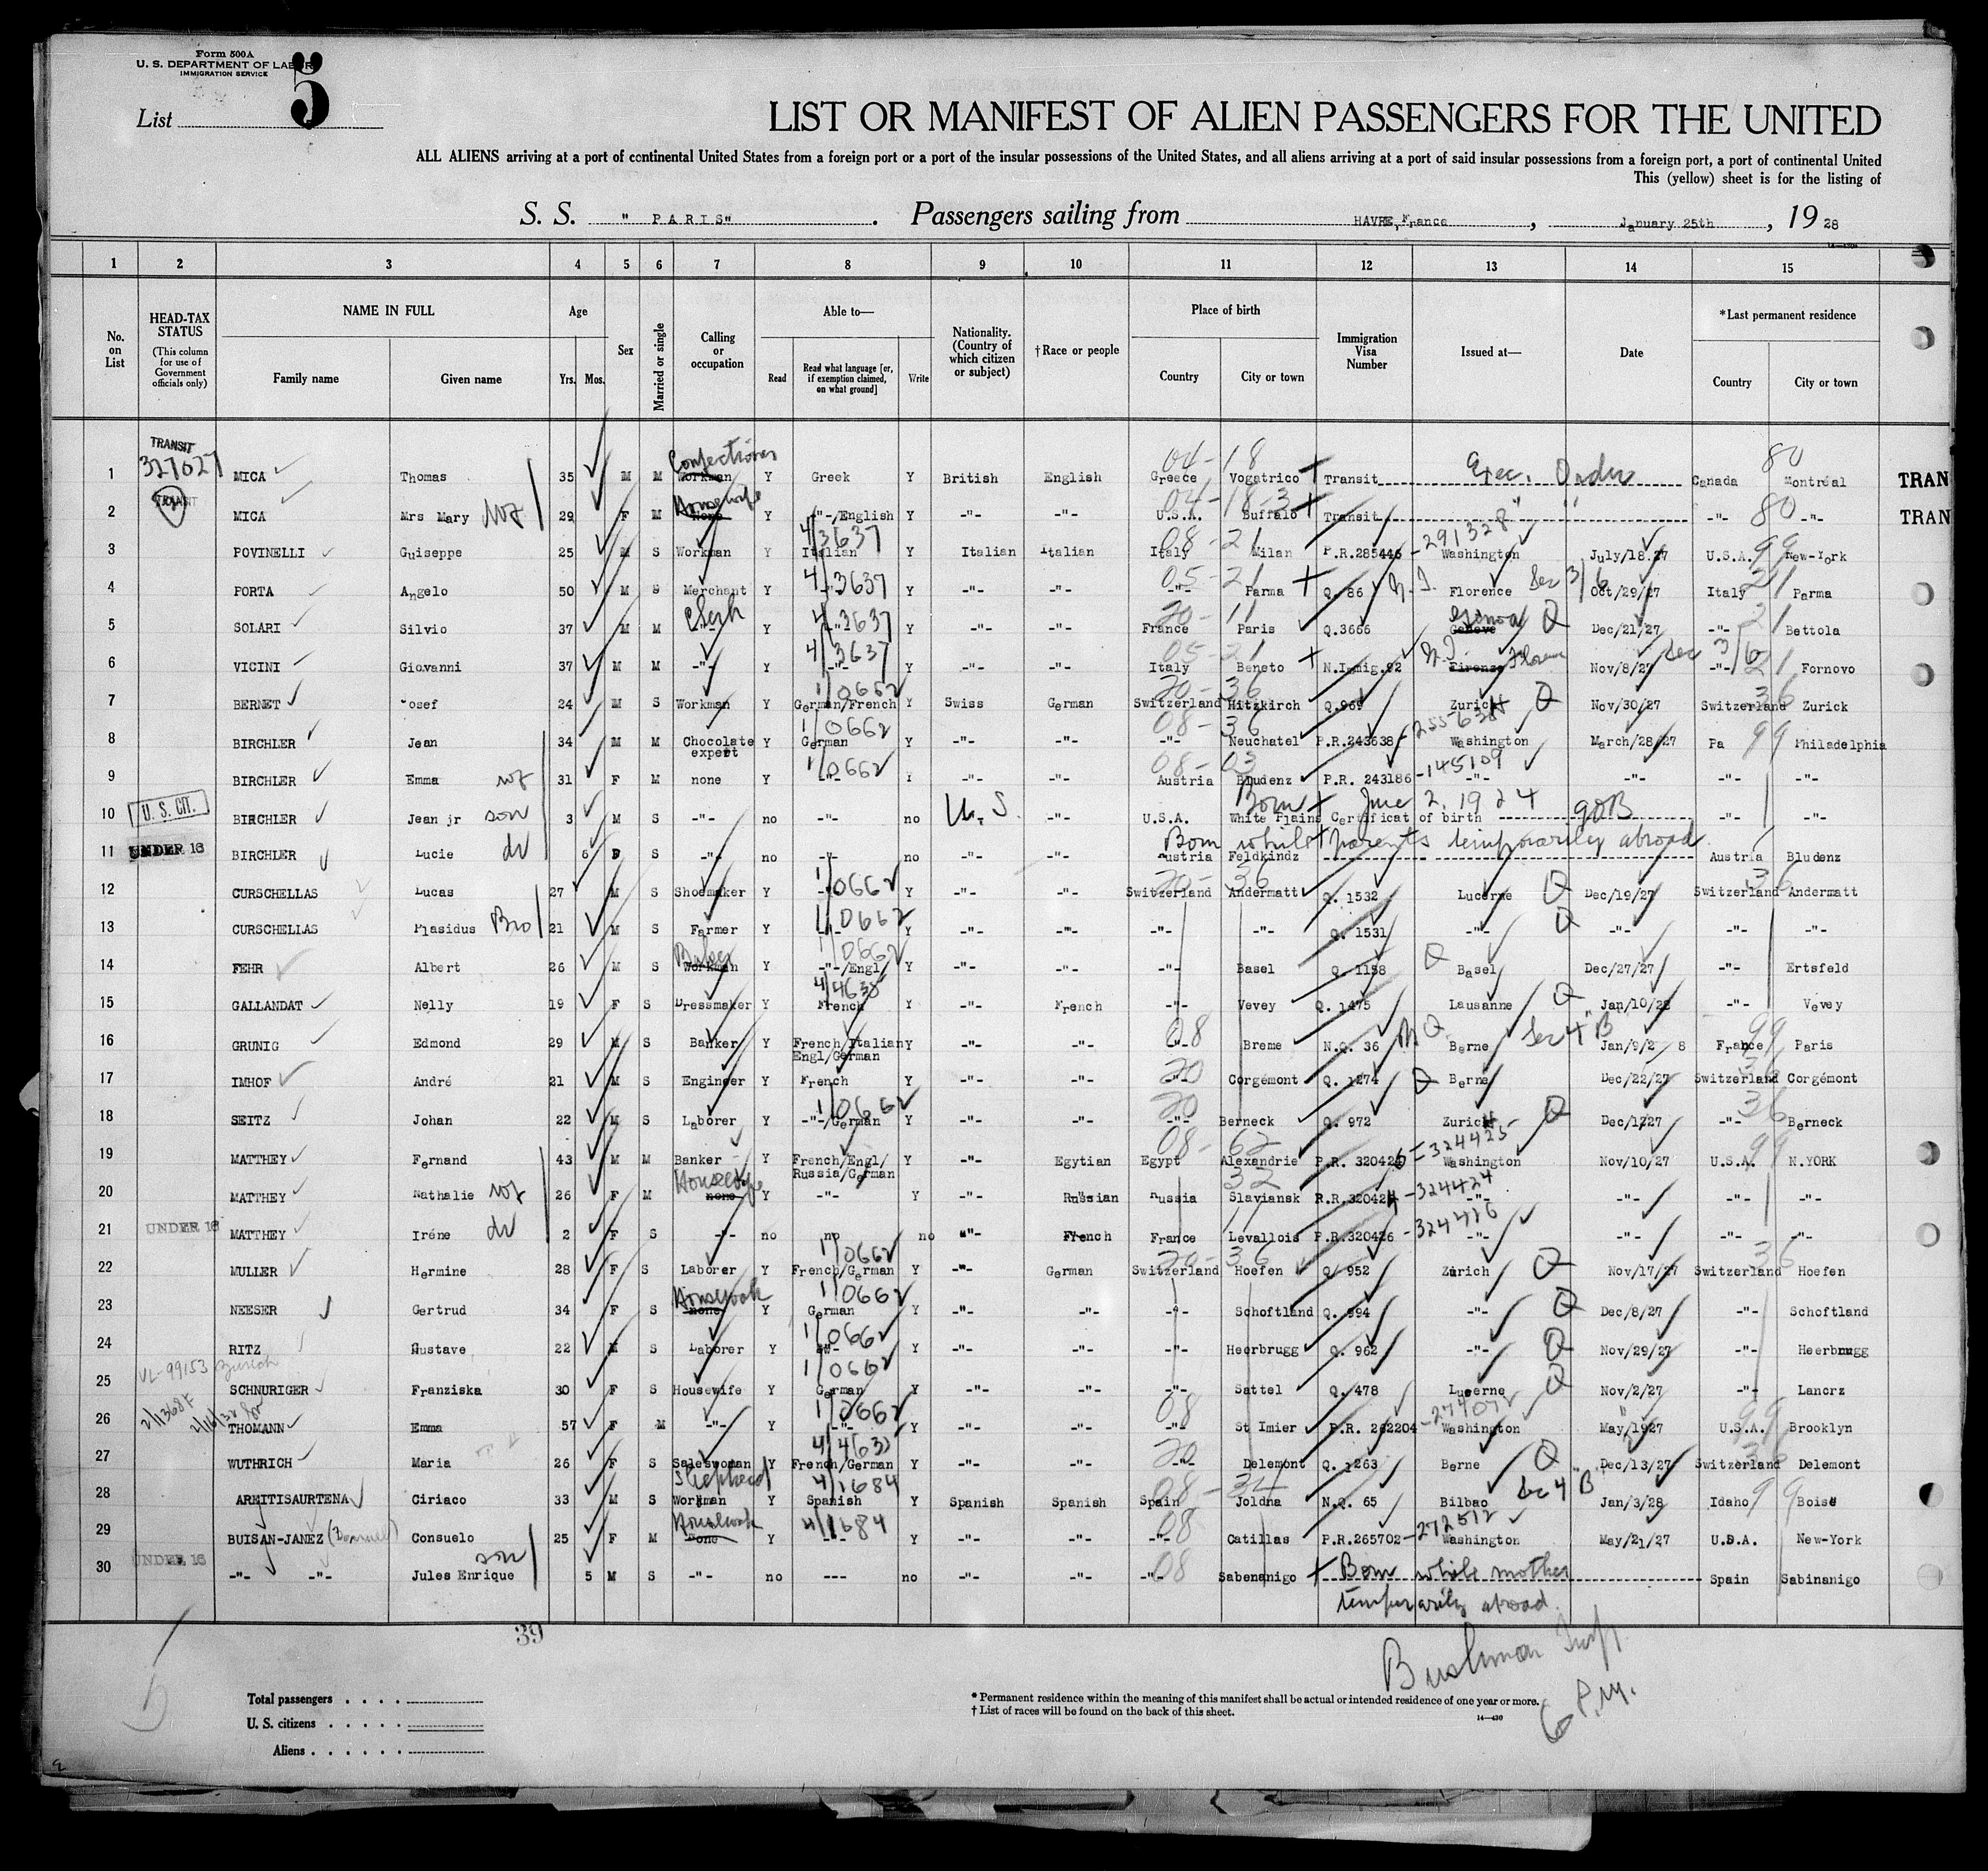 Form 500A
U. S. DEPARTMENT OF LABOR
IMMIGRATION SERVICE
5
List
LIST OR MANIFEST OF ALIEN PASSENGERS FOR THE UNITED
ALL ALIENS arriving at a port of continental United States from a foreign port or a port of the insular possessions of the United States, and all aliens arriving at a port of said insular possessions from a foreign port, a port of continental United
This (yellow) sheet is for the listing of
S. S. " PARIS" . Passengers sailing from HAVRE, France , January 25th , 19 28
1 2 3 4 5 6 7 8 9 10 11 12 13 14 15
No. on List
HEAD-TAX STATUS (This column for use of Government officials only)
NAME IN FULL Family name Given name
Age Yrs. Mos.
Sex
Married or single
Calling or occupation
Able to— Read Read what language [or, if exemption claimed, on what ground] Write
Nationality. (Country of which citizen or subject)
† Race or people
Place of birth Country City or town
Immigration Visa Number
Issued at—
Date
* Last permanent residence Country City or town
TRANSIT 327027
1 MICA Thomas 35 M M Workman Confectioner Y Greek Y British English Greece Vogatrico Transit Exec. Order Canada Montréal TRAN
2 MICA Mrs Mary wf 29 F M None Housewife Y -"-/English Y -"- -"- U.S.A. Buffalo Transit " " -"- -"- TRAN
3 POVINELLI Guiseppe 25 M S Workman Y Italian Y Italian Italian Italy Milan P.R.285446 -291328 Washington July/18.27 U.S.A. New-York
4 PORTA Angelo 50 M S Merchant Y -"- Y -"- -"- -"- Parma Q. 86 Florence Sec 3/6 Oct/29/27 Italy Parma
5 SOLARI Silvio 37 M M Clerk Y -"- Y -"- -"- France Paris Q.3666 Geneve Genoa Q Dec/21/27 -"- Bettola
6 VICINI Giovanni 37 M M -"- Y -"- Y -"- -"- Italy Beneto N.Immig.92 Firenze Florence Nov/8/27 Sec 3/6 -"- Fornovo
7 BERNET Josef 24 M S Workman Y German/French Y Swiss German Switzerland Hitzkirch Q.969 Zurich Q Nov/30/27 Switzerland Zurick
8 BIRCHLER Jean 34 M M Chocolate expert Y German Y -"- -"- -"- Neuchatel P.R.243638 Washington March/28/27 Pa Philadelphia
9 BIRCHLER Emma wf 31 F M none Y -"- -"- -"- Austria Bludenz P.R. 243186 -145109 -"- -"- -"- -"-
10 U. S. CIT. BIRCHLER Jean jr son 3 M S -"- no -"- no U.S. -"- U.S.A. White Plains Certificat of birth Born June 2. 1924
11 UNDER 16 BIRCHLER Lucie dr 6 S -"- no -"- no -"- -"- Austria Feldkindz Born while parents temporarily abroad Austria Bludenz
12 CURSCHELLAS Lucas 27 M S Shoemaker Y -"- Y -"- -"- Switzerland Andermatt Q. 1532 Lucerne Q Dec/19/27 Switzerland Andermatt
13 CURSCHELLAS Plasidus Bro 21 M S Farmer Y -"- Y -"- -"- -"- -"- Q. 1531 -"- Q -"- -"- -"-
14 FEHR Albert 26 M S Workman Baker Y -"-/Engl/ Y -"- -"- -"- Basel Q. 1158 Q Basel Dec/27/27 -"- Ertsfeld
15 GALLANDAT Nelly 19 F S Dressmaker Y French Y -"- French -"- Vevey Q. 1475 Lausanne Q Jan/10/28 -"- Vevey
16 GRUNIG Edmond 29 M S Banker Y French/Italian Engl/German Y -"- -"- -"- Breme N.Q. 36 Berne Sec 4 "B" Jan/9/2 8 France Paris
17 IMHOF André 21 M S Engineer Y French Y -"- -"- -"- Corgémont Q. 1274 Q Berne Dec/22/27 Switzerland Corgémont
18 SEITZ Johan 22 M S Laborer Y -"-/German Y -"- -"- -"- Berneck Q. 972 Zurich Q Dec/1/27 -"- Berneck
19 MATTHEY Fernand 43 M M Banker Y French/Engl/ Russia/German Y -"- Egytian Egypt Alexandrie P.R. 320425 -324425 Washington Nov/10/27 U.S.A. N.YORK
20 MATTHEY Nathalie wf 26 F M none Housewife Y -"- Y -"- Russian Russia Slaviansk R.R.320424 -324424 -"- -"- -"- -"-
21 UNDER 16 MATTHEY Iréne dr 2 F S -"- no no no -"- French France Levallois P.R.320426 -324426 -"- -"- -"- -"-
22 MULLER Hermine 28 F S Laborer Y French/German Y -"- German Switzerland Hoefen Q/ 952 Zürich Q Nov/17/27 Switzerland Hoefen
23 NEESER Gertrud 34 F S none Housework Y German Y -"- -"- -"- Schoftland Q. 994 -"- Q Dec/8/27 -"- Schoftland
24 RITZ Gustave 22 M S Laborer Y -"- Y -"- -"- -"- Heerbrugg Q. 962 -"- Q Nov/29/27 -"- Heerbrugg
VL-99153 Zurich
25 SCHNURIGER Franziska 30 F S Housewife Y German Y -"- -"- -"- Sattel Q. 478 Lucerne Q Nov/2/27 -"- Lanorz
26 THOMANN Emma 57 F M -"- Y -"- Y -"- -"- -"- St Imier P.R. 262204 -274072 Washington May/1927 U.S.A. Brooklyn
27 WUTHRICH Maria 26 F S Saleswoman Y French/German Y -"- -"- -"- Delemont Q. 1263 Berne Q Dec/13/27 Switzerland Delemont
28 ARMITISAURTENA Ciriaco 33 M S Workman Shepherd Y Spanish Y Spanish Spanish Spain Joldna N.Q. 65 Bilbao Sec 4 "B" Jan/3/28 Idaho Boise
29 BUISAN-JANEZ Consuelo 25 F M None Housework Y -"- Y -"- -"- -"- Catillas P.R.265702 -272512 Washington May/21/27 U.S.A. New-York
30 UNDER 16 -"- -"- Jules Enrique son 5 M S -"- no --- no -"- -"- -"- Sabenanigo Born while mother temporarily abroad. Spain Sabinanigo
39
Bushman Insp.
6 P.M.
Total passengers . . . .
U. S. citizens . . . . .
Aliens . . . . . .
* Permanent residence within the meaning of this manifest shall be actual or intended residence of one year or more.
† List of races will be found on the back of this sheet.
14—430